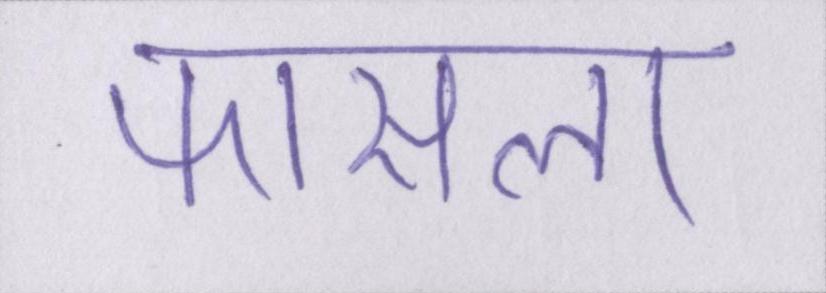 फासला